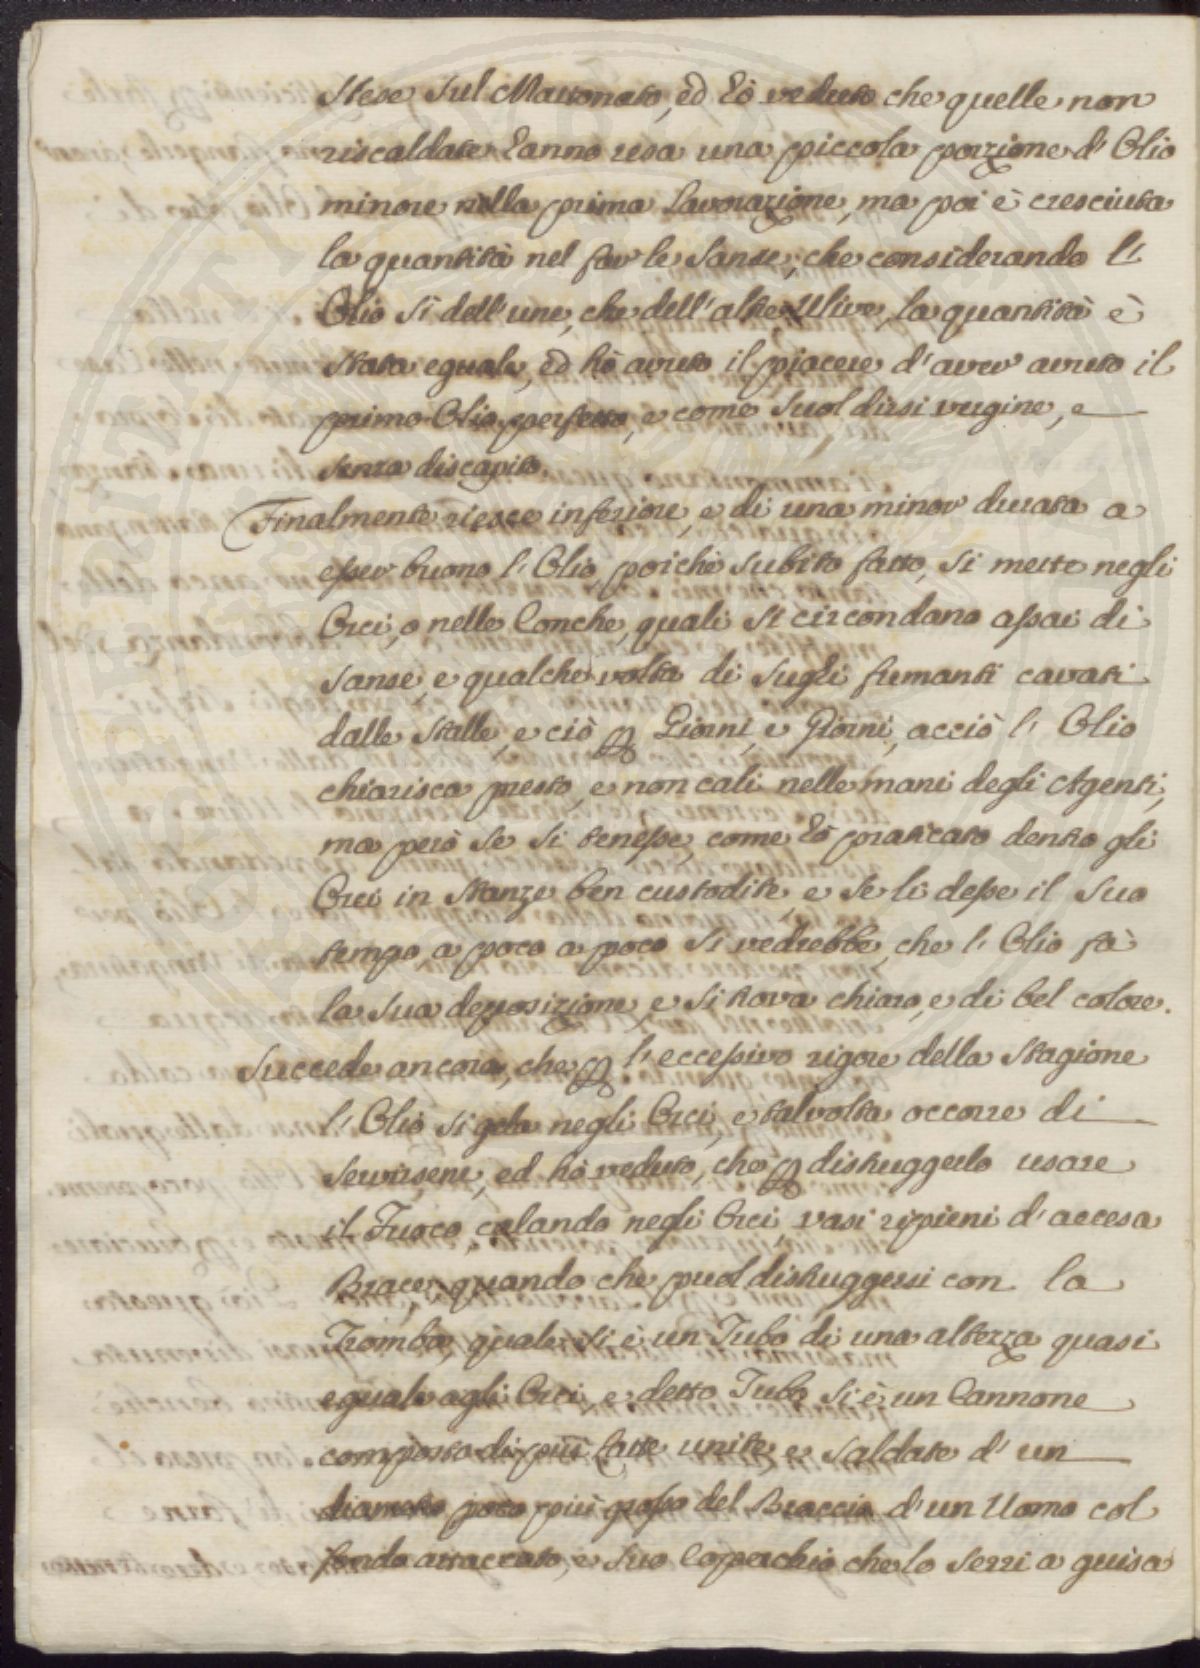 stese sul Mattonato, ed hò veduto che quelle non
riscaldate hanno resa una piccola porzione d' Olio
minore nella prima Lavorazione, ma poi è cresciuta
la quantità nel far le Sanse, che considerando l'
Olio sì dell'une, che dell'altre Ulive, la quantità è
stata eguale, ed hò avuto il piacere d'aver avuto il
primo Olio perfetto, e come suol dirsi vergine, e
senza discapito.
Finalmente riesce inferiore, e di una minor durata a
esser buono l' Olio, poichè subito fatto, si mette negli
Orci, o nelle Conche, quali si circondano assai di
sanse, e qualche volta di sugli fumanti cavati
dalle stalle, e ciò p Giorni, e Giorni, acciò l' Olio
chiarisca presto, e non cali nelle mani degli Agenti,
ma però se si tenesse, come hò praticato dentro gli
Orci in stanze ben custodite, e se li desse il suo
tempo, a poco a poco si vedrebbe, che l' Olio fà
la sua deposizione, e si trova chiaro, e di bel colore.
Succede ancora, che p l' eccessivo rigore della Stagione
l' Olio si gela negli Orci, e talvolta occorre di
servirsene, ed hò veduto, che p distruggerlo usare
il Fuoco, calando negli Orci, vasi ripieni d'accesa
Brace, quando che puol distruggersi con la
Tromba, quale si è un Tubo di una altezza quasi
eguale agli Orci, e detto Tubo si è un Cannone
composto di più Latte unite, e saldate d' un
diametro poco più grosso del Braccio d'un Uomo col
fondo attaccato, e suo Coperchio che lo serri a guisa